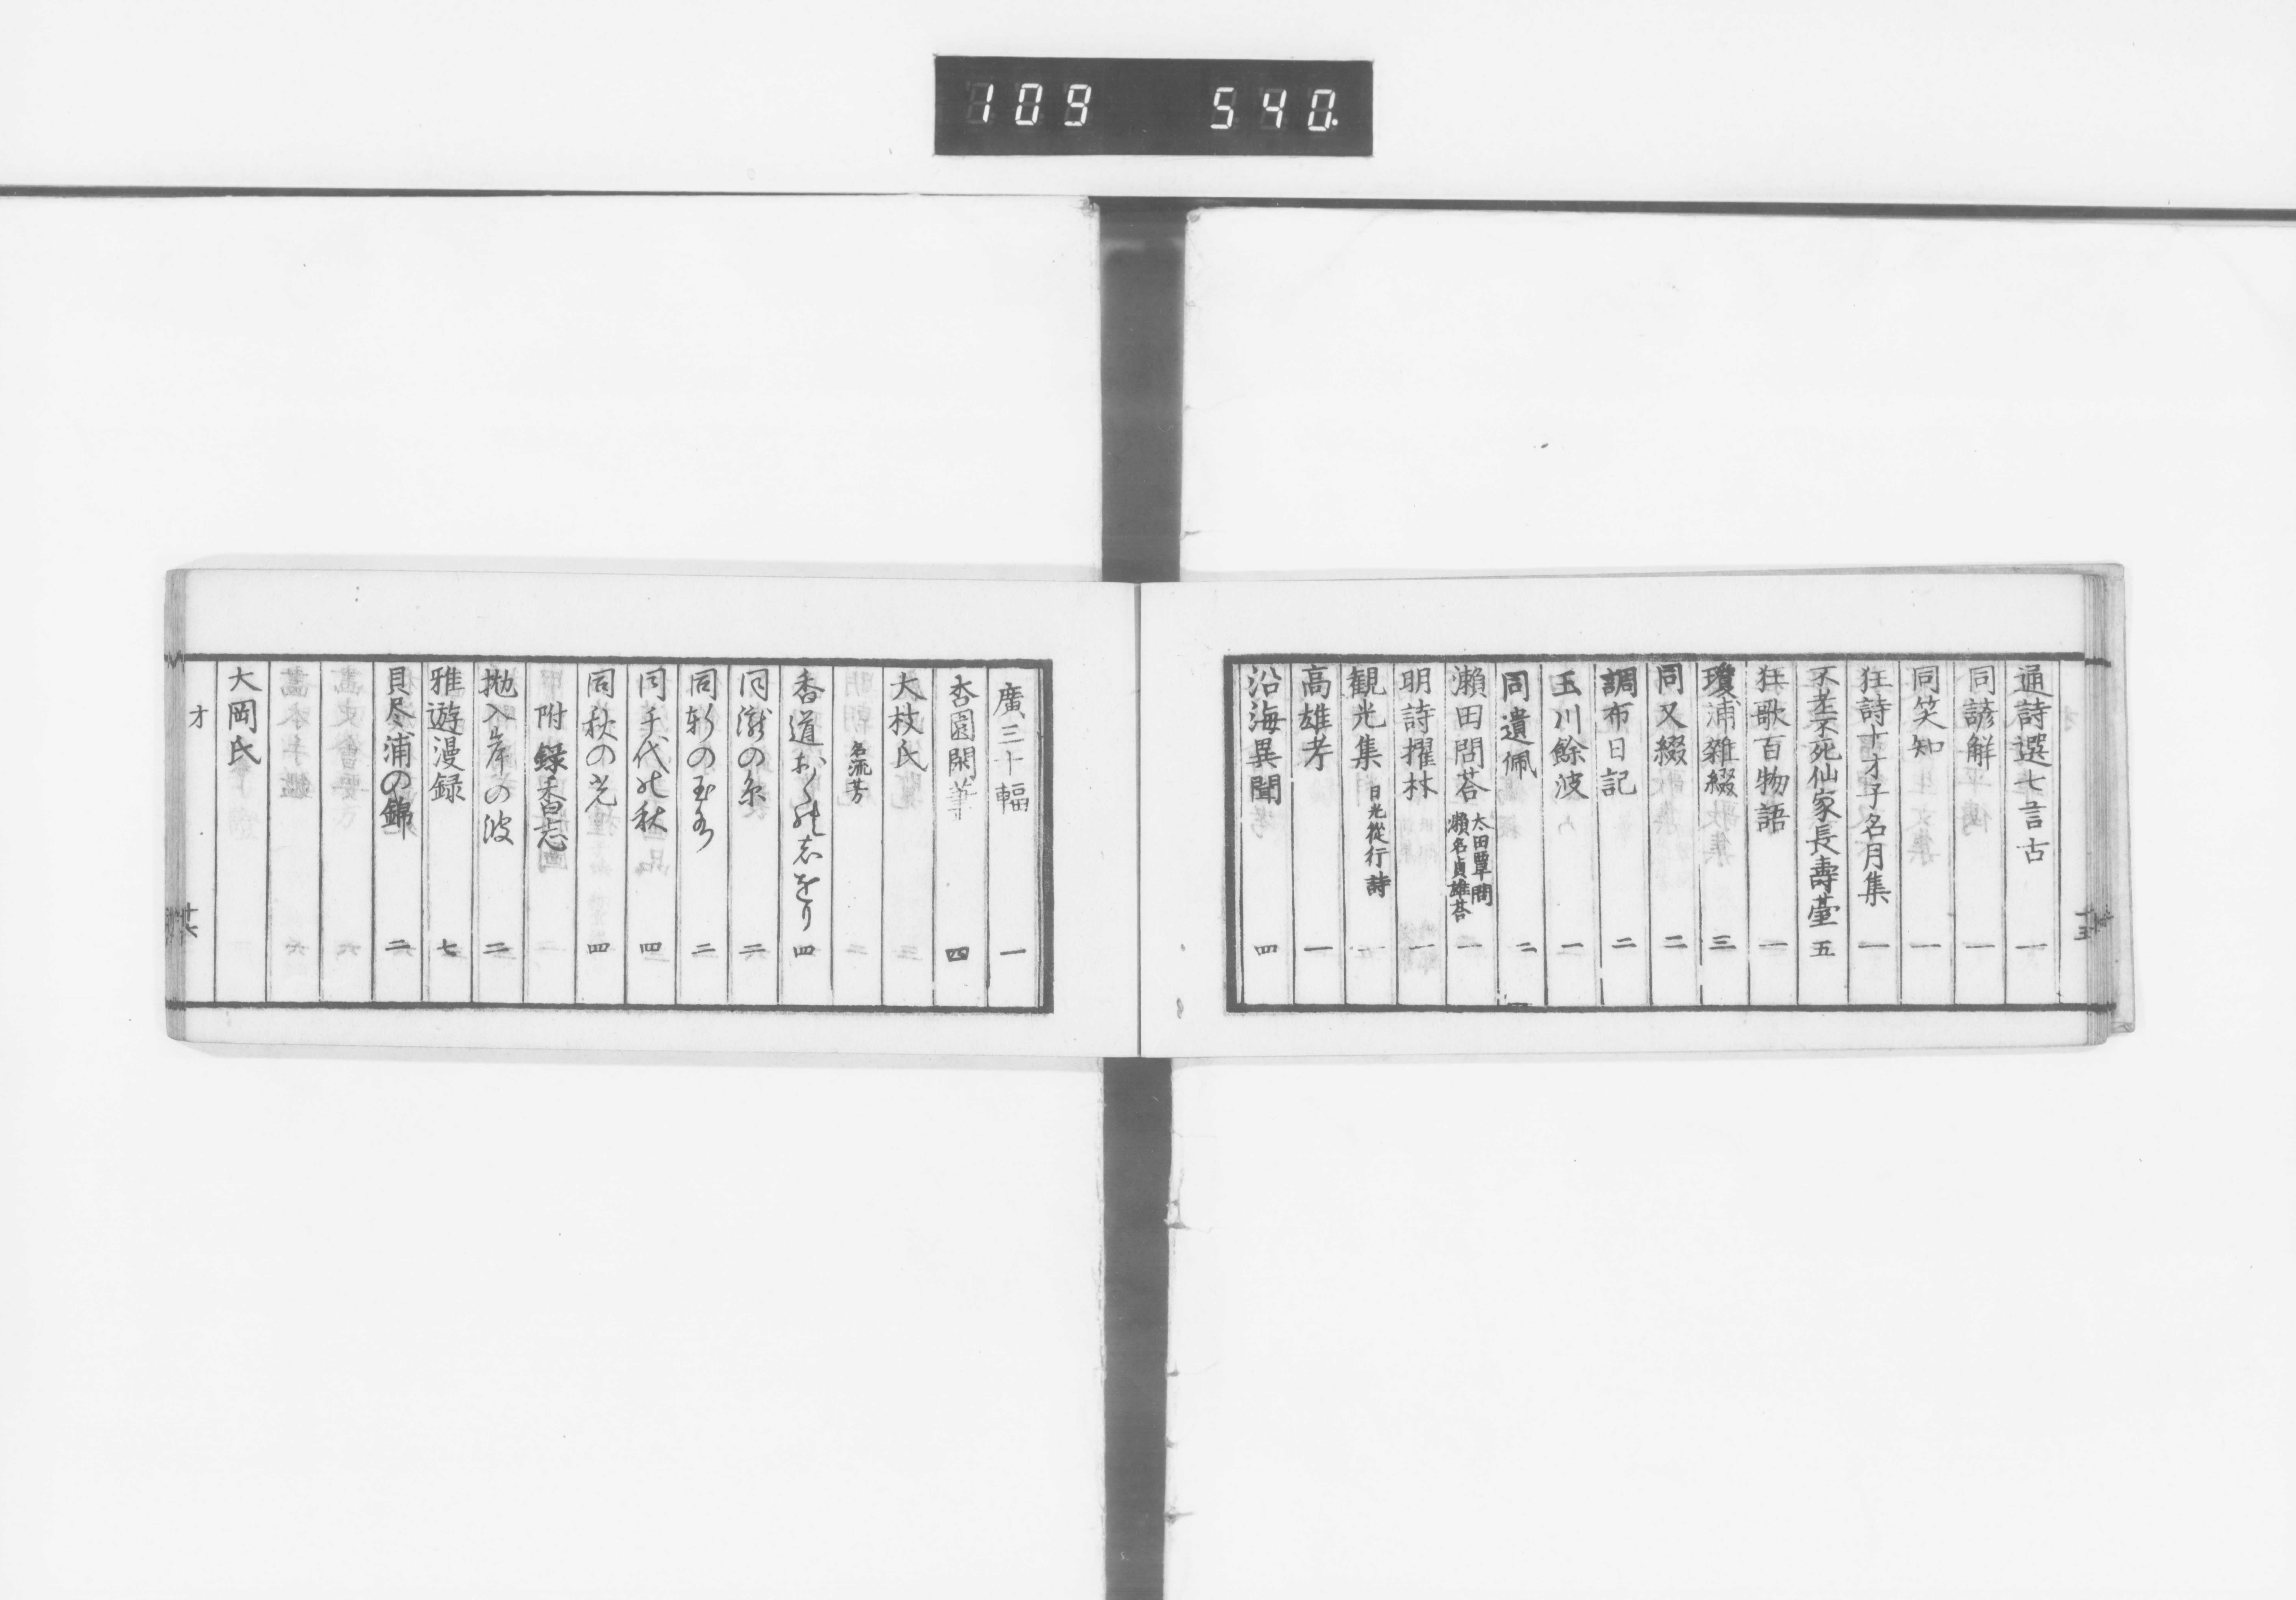 109 540.
通詩選七言古 一
同諺解 一
同笑知 一
狂詩十才子名月集 一
不老不死仙家長壽臺 五
狂歌百物語 一
瓊浦雜綴 三
同又綴 二
調布日記 二
玉川餘波 一
同遺佩 二
瀬田問荅 太田覃問 瀬名貞雄荅 一
明詩擢材 一
観光集 日光從行詩
高雄考 一
沿海異聞 四
廣三十輻 一
杏園閑筆 四
大枝氏
名流芳
香道おくの志をり 四
同瀧の糸 二
同新の玉
同千代の秋 四
同秋の光 四
附録香志
抛入岸の波 二
雅遊漫録 七
貝尽浦の錦 二
大岡氏
才 十六